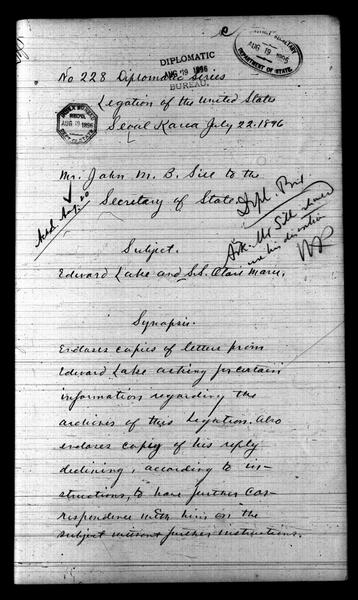 DIPLOMATIC
AUG 19 1896
BUREAU.
AUG 19 1896
DEPARTMENT OF STATE.
No 228 Diplomatic Series
Legation of the United States
Seoul Korea July 22. 1896
AUG 19 1896
Mr. John M. B. Sill to the
Secretary of State.
Dipl. Bu.
Subject.
Edward Lake and S.S. Marie.
Synopsis.
Encloses copies of letter from
Edward Lake asking for certain
information regarding the
archives of this Legation. Also
encloses copy of his reply
declining, according to in-
structions, to have further cor-
respondence with him on the
subject without further instructions.